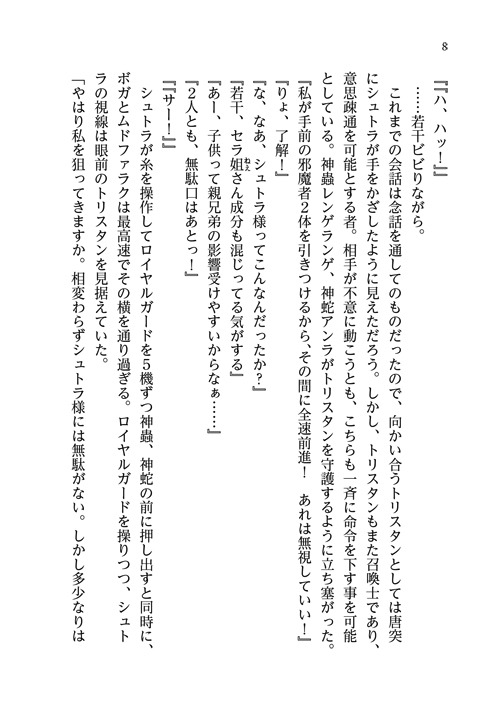 8
『『ハ、ハッ！』』
……若干ビビりながら。
これまでの会話は念話を通してのものだったので、向かい合うトリスタンとしては唐突
にシュトラが手をかざしたように見えただろう。しかし、トリスタンもまた召喚士であり、
意思疎通を可能とする者。相手が不意に動こうとも、こちらも一斉に命令を下す事を可能
としている。神蟲レンゲランゲ、神蛇アンラがトリスタンを守護するように立ち塞がった。
『私が手前の邪魔者２体を引きつけるから、その間に全速前進！　あれは無視していい！』
『りょ、了解！』
『な、なあ、シュトラ様ってこんなんだったか？』
『若干、セラ姐さん成分も混じってる気がする』
『あー、子供って親兄弟の影響受けやすいからなぁ……』
『２人とも、無駄口はあとっ！』
『『サー！』』
シュトラが糸を操作してロイヤルガードを５機ずつ神蟲、神蛇の前に押し出すと同時に、
ボガとムドファラクは最高速でその横を通り過ぎる。ロイヤルガードを操りつつ、シュト
ラの視線は眼前のトリスタンを見据えていた。
「やはり私を狙ってきますか。相変わらずシュトラ様には無駄がない。しかし多少なりは